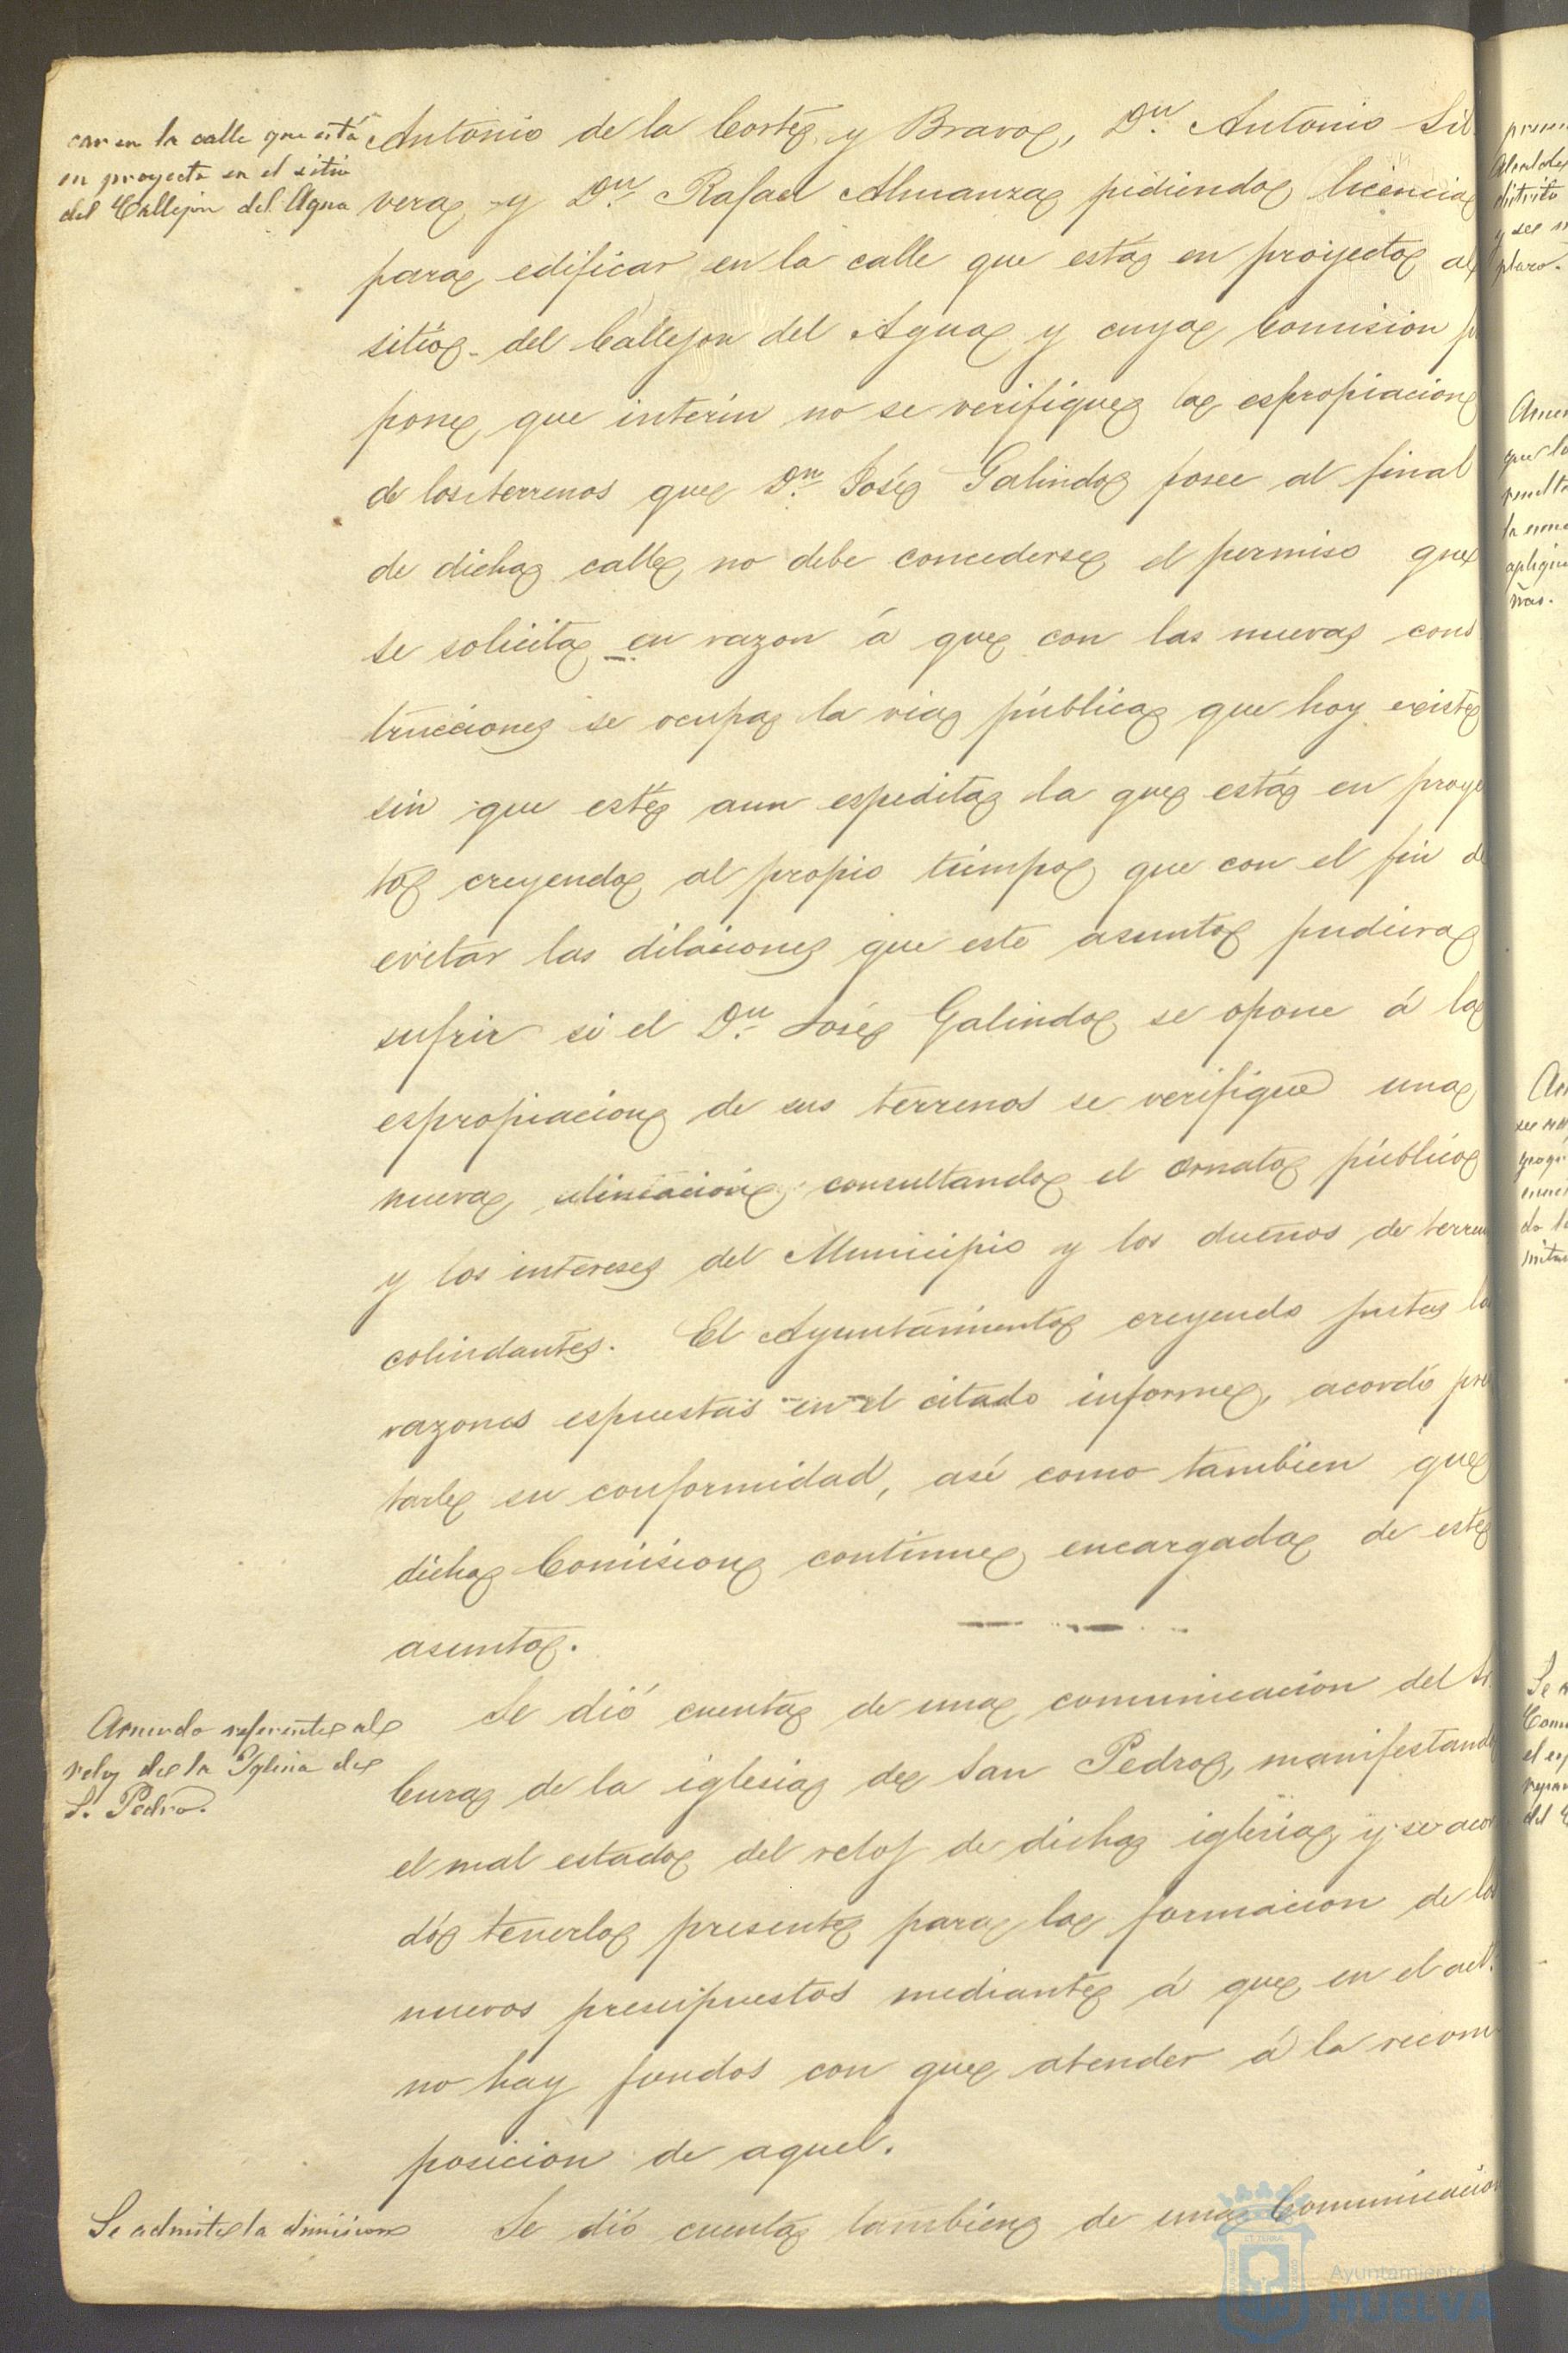 car en la calle que está
en proyecto en el sitio
del Callejon del Agua
Antonio de la Corte y Bravo, Dn. Antonio Sil
vera y Dn. Rafael Almanza pidiendo licencia
para edificar en la calle que está en proyecto al
sitio del Callejon del Agua y cuya Comision
pone que interin no se verifique la espropiacion
de los terrenos que Dn. José Galindo posee al final
de dicha calle no debe concederse el permiso que
se solicita en razon á que con las nuevas cons
trucciones se ocupa la via pública que hoy existe
sin que esté aun espedita la que está en proye
to creyendo al propio tiempo que con el fin de
evitar las dilaciones que este asunto pudiera
sufrir si el Dn. José Galindo se opone á la
espropiacion de sus terrenos se verifique una
nueva alineacion consultando el ornato público
y los intereses del Municipio y los dueños de terren
colindantes. El Ayuntamiento creyendo justas la
razones espuestas en el citado informe, acordó pres
tarle su conformidad, así como tambien que
dicha Comision continue encargada de este
asunto.
Acuerdo referente al
reloj de la Iglesia de
S. Pedro.
Se dió cuenta de una comunicacion del Sr
Cura de la iglesia de San Pedro, manifestando
el mal estado del reloj de dicha iglesia y se acor
dó tenerlo presente para la formacion de los
nuevos presupuestos mediante á que en el act.
no hay fondos con que atender á la recom
posicion de aquel.
Se admite la dimision
Se dió cuenta tambien de una Comunicacion
Ayuntamiento de
HUELVA